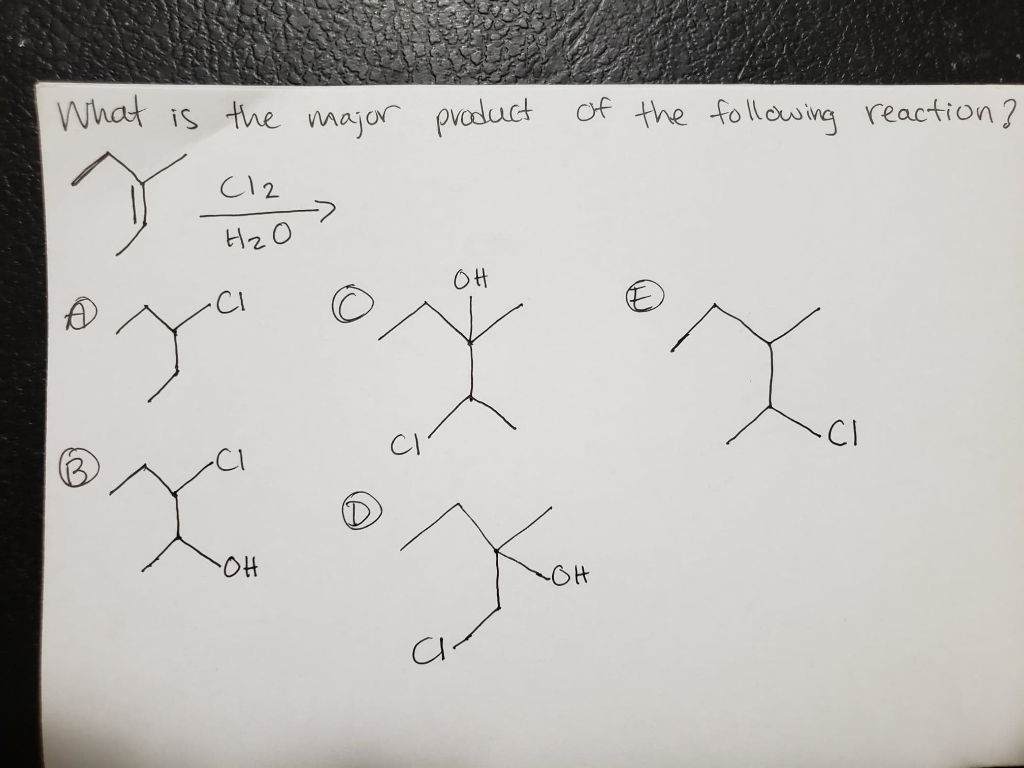 What is the major product of the following reaction?
Cl2
H2O
A Cl
B Cl
OH
C OH
Cl
D OH
Cl
E Cl